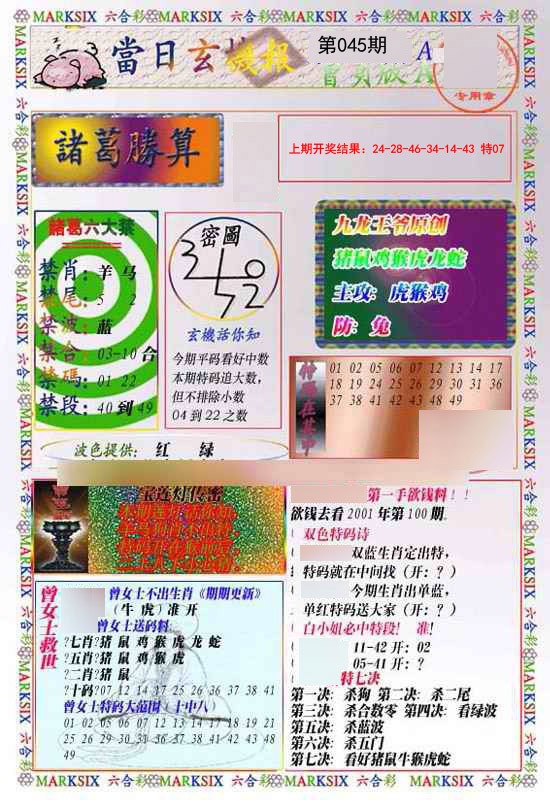 MARKSIX 六合彩 MARKSIX 六合彩 MARKSIX 六合彩 MARKSIX 六合彩 MARKSIX
當日玄機报
第045期
A
专用章
諸葛勝算
上期开奖结果：24-28-46-34-14-43 特07
諸葛六大禁
禁肖：羊 马
禁尾：5 2
禁波：蓝
禁合：03-10 合
禁碼：01 22
禁段：40 到 49
密圖
玄機話你知
今期平码看好中数
本期特码追大数，
但不排除小数
04 到 22 之数
九龙王爷原创
猪鼠鸡猴虎龙蛇
主攻：虎猴鸡
防：兔
01 02 05 06 07 12 13 14 17
18 19 24 25 26 29 30 31 36
37 38 41 42 43 48 49
波色提供： 红 绿
宝莲灯传密
第一手欲钱料！！
欲钱去看 2001 年第 100 期.
双色特码诗
双蓝生肖定出特，
特码就在中间找（开：？）
今期生肖出单蓝，
单红特码送大家（开：？）
白小姐必中特段！ 准!
11-42 开：02
05-41 开：？
特七决
第一决：杀狗 第二决：杀二尾
第三决：杀合数零 第四决：看绿波
第五决：杀蓝波
第六决：杀五门
第七决：看好猪鼠牛猴虎蛇
曾女士救世
曾女士不出生肖《期期更新》
（牛 虎）准 开
曾女士送码料
?七肖?猪 鼠 鸡 猴 虎 龙 蛇
?五肖?猪 鼠 鸡 猴 虎
?二肖?猪 鼠
?十码?07 12 14 17 25 26 36 37 38 41
曾女士特码大范围（十中八）
01 02 05 06 07 12 13 14 17 18 19 21
25 26 29 30 31 36 37 38 41 42 43 48
49
MARKSIX 六合彩 MARKSIX 六合彩 MARKSIX 六合彩 MARKSIX 六合彩 MARKSIX